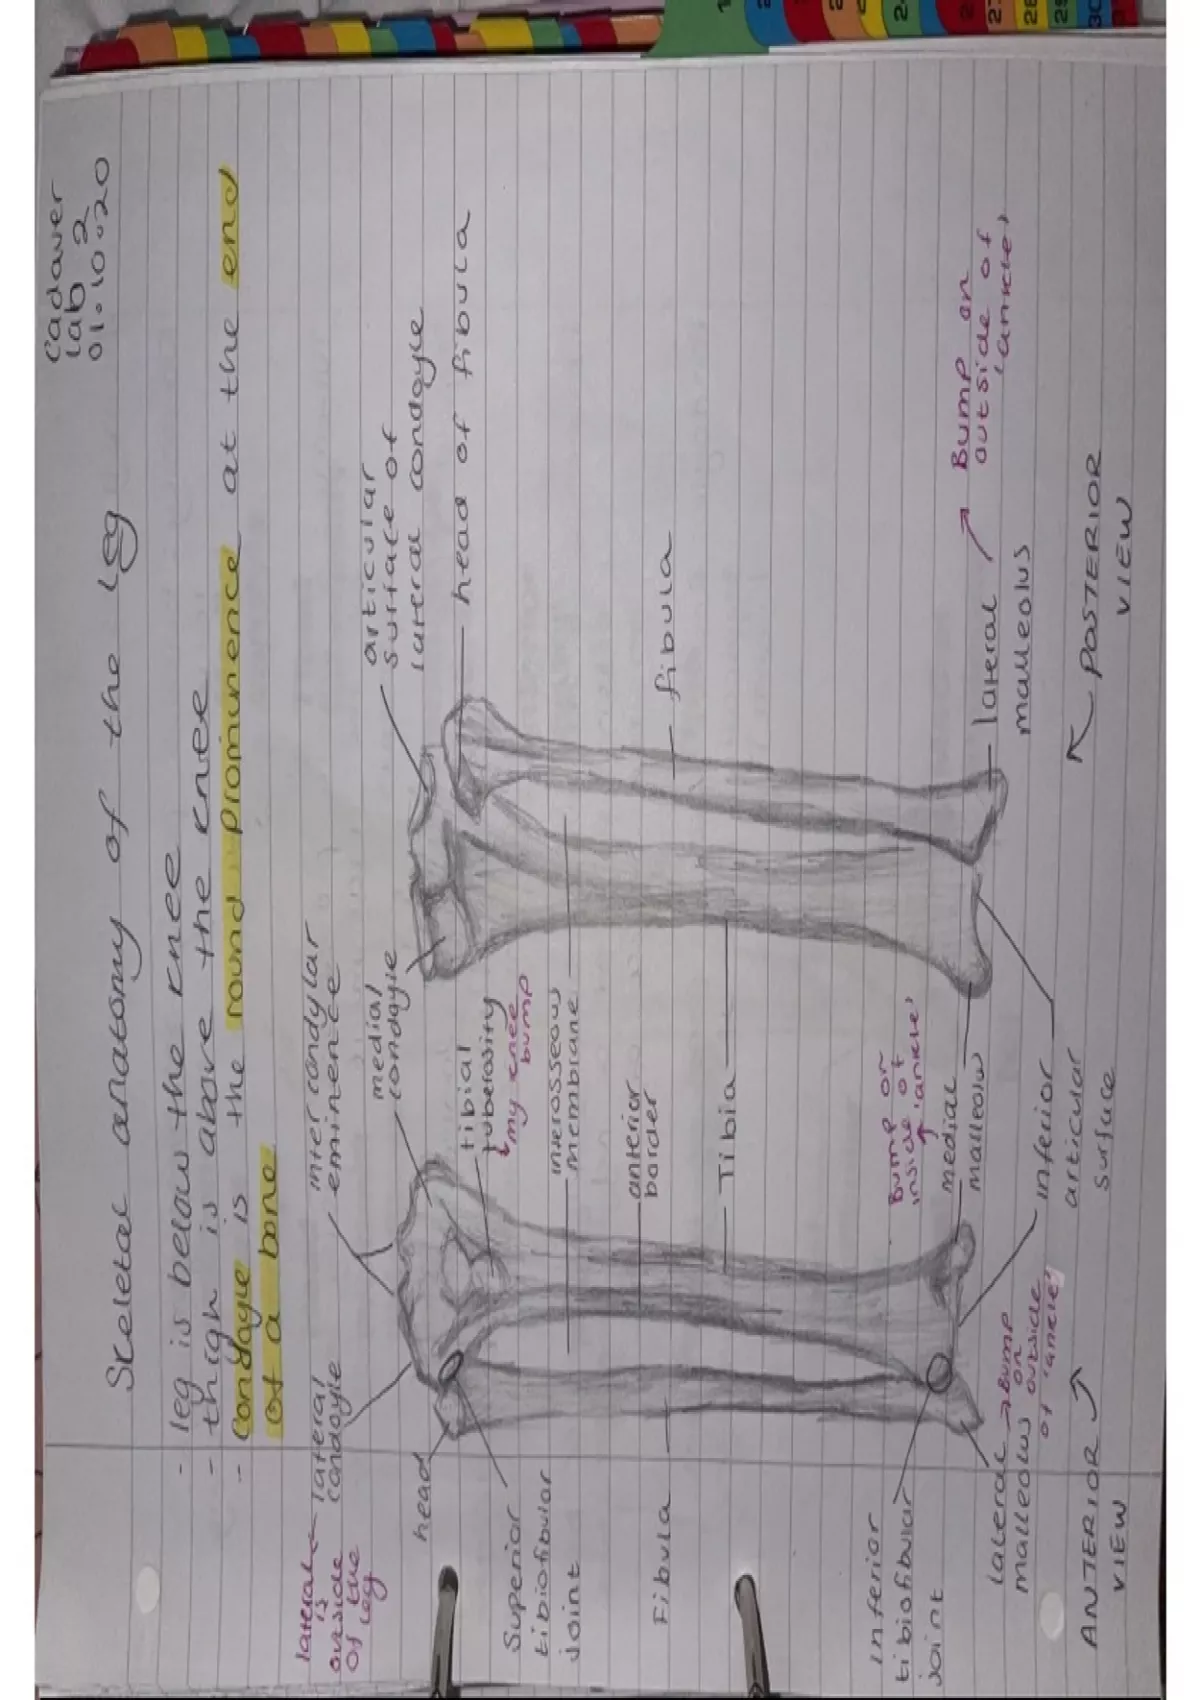 cadaver
lab 2
01.10.20
Skeletal anatomy of the leg
- leg is below the knee
- thigh is above the knee
- Condoyle is the round prominence at the end
of a bone
lateral
is
outside
of the
leg
lateral
condoyle
inter condylar
eminence
medial
condoyle
articular
surface of
lateral condoyle
head
head of fibula
tibial
tuberosity
my knee
bump
Superior
tibiofibular
joint
interosseous
membrane
anterior
border
Fibula
Tibia
fibula
inferior
tibiofibular
joint
Bump on
inside of
'ankle'
medial
malleolus
lateral
malleolus
Bump
on
outside
of 'ankle'
inferior
articular
surface
lateral
malleolus
Bump on
outside of
'ankle'
ANTERIOR
VIEW
POSTERIOR
VIEW